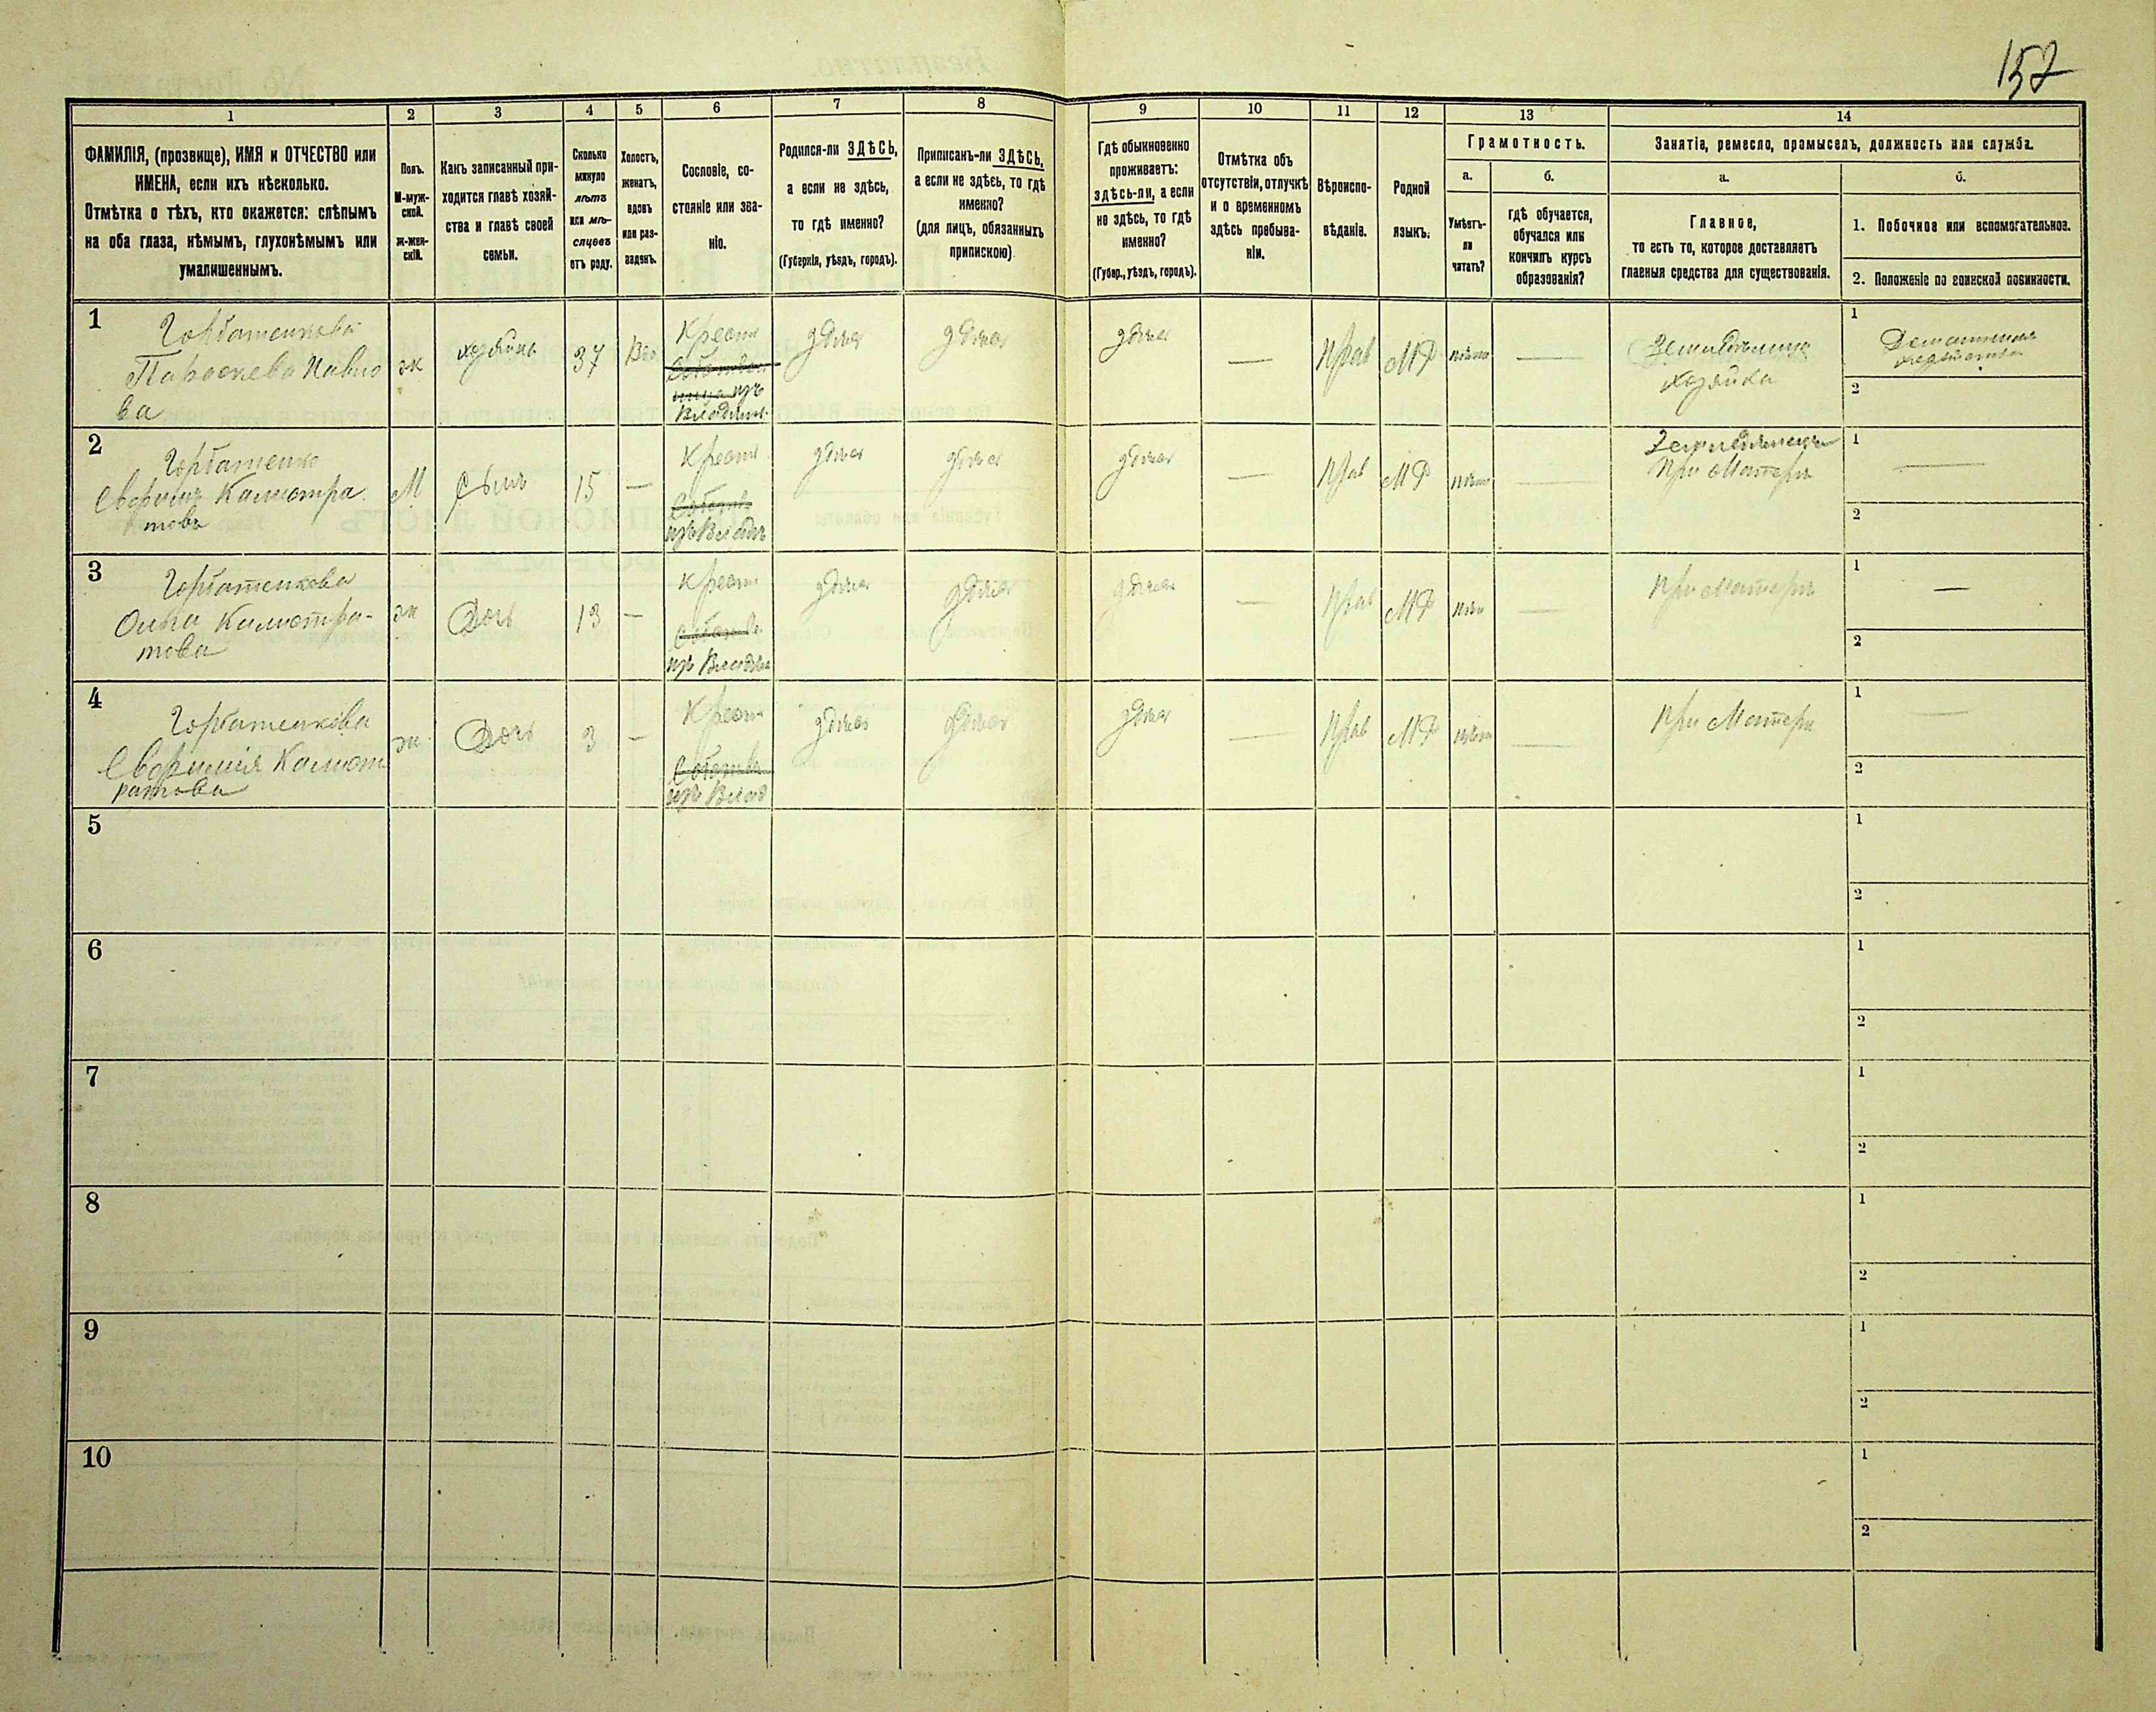 157
1
2
3
4
5
6
7
8
9
10
11
12
13
14
ФАМИЛІЯ, (прозвище), ИМЯ и ОТЧЕСТВО или
ИМЕНА, если ихъ нѣсколько.
Отмѣтка о тѣхъ, кто окажется: слѣпымъ
на оба глаза, нѣмымъ, глухонѣмымъ или
умалишеннымъ.
Полъ.
М-муж-
ской.
ж-жен-
скій.
Какъ записанный при-
ходится главѣ хозяй-
ства и главѣ своей
семьи.
Сколько
минуло
лѣтъ
или мѣ-
сяцевъ
отъ роду.
Холостъ,
женатъ,
вдовъ
или раз-
веденъ.
Сословіе, со-
стояніе или зва-
ніе.
Родился-ли ЗДѢСЬ,
а если не здѣсь,
то гдѣ именно?
(Губернія, уѣздъ, городъ).
Приписанъ-ли ЗДѢСЬ,
а если не здѣсь, то гдѣ
именно?
(для лицъ, обязанныхъ
припискою)
Гдѣ обыкновенно
проживаетъ:
здѣсь-ли, а если
не здѣсь, то гдѣ
именно?
(Губер., уѣздъ, городъ).
Отмѣтка объ
отсутствіи, отлучкѣ
и о временномъ
здѣсь пребыва-
ніи.
Вѣроиспо-
вѣданіе.
Родной
языкъ.
Грамотность.
а.
б.
Умѣетъ-
ли
читать?
гдѣ обучается,
обучался или
кончилъ курсъ
образованія?
Занятіе, ремесло, промыселъ, должность или служба.
а.
б.
Главное,
то есть то, которое доставляетъ
главныя средства для существованія.
1. Побочное или вспомогательное.
2. Положеніе по воинской повинности.
1
Горбатенкова
Параскева Павло
ва
ж
хозяйка
37
Вдо
Крест
изъ
Владѣл.
здѣсь
здѣсь
здѣсь
—
Прав
МР
нѣтъ
—
Земледѣлица
хозяйка
1
2
2
Горбатенко
Калистра
товъ
М
Сынъ
15
—
Крест
изъ Владѣл
здѣсь
здѣсь
здѣсь
—
Прав
МР
нѣтъ
—
Земледѣлецъ
При Матери
1
—
2
3
Горбатенкова
Калистра-
това
ж
Дочь
13
—
Крест
изъ Владѣл
здѣсь
здѣсь
здѣсь
—
Прав
МР
нѣт
—
При Матери
1
—
2
4
Горбатенкова
Калист
ратова
ж
Дочь
3
—
Крест
изъ Влад
здѣсь
здѣсь
здѣсь
—
Прав
МР
нѣтъ
—
При Матери
1
—
2
5
1
2
6
1
2
7
1
2
8
1
2
9
1
2
10
1
2